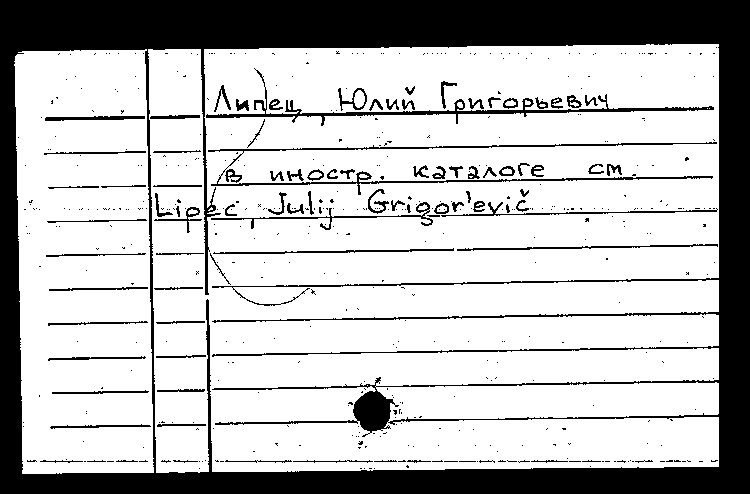 Липец, Юлий Григорьевич
в иностр. каталоге см.
Lipec, Julij Grigor'evič